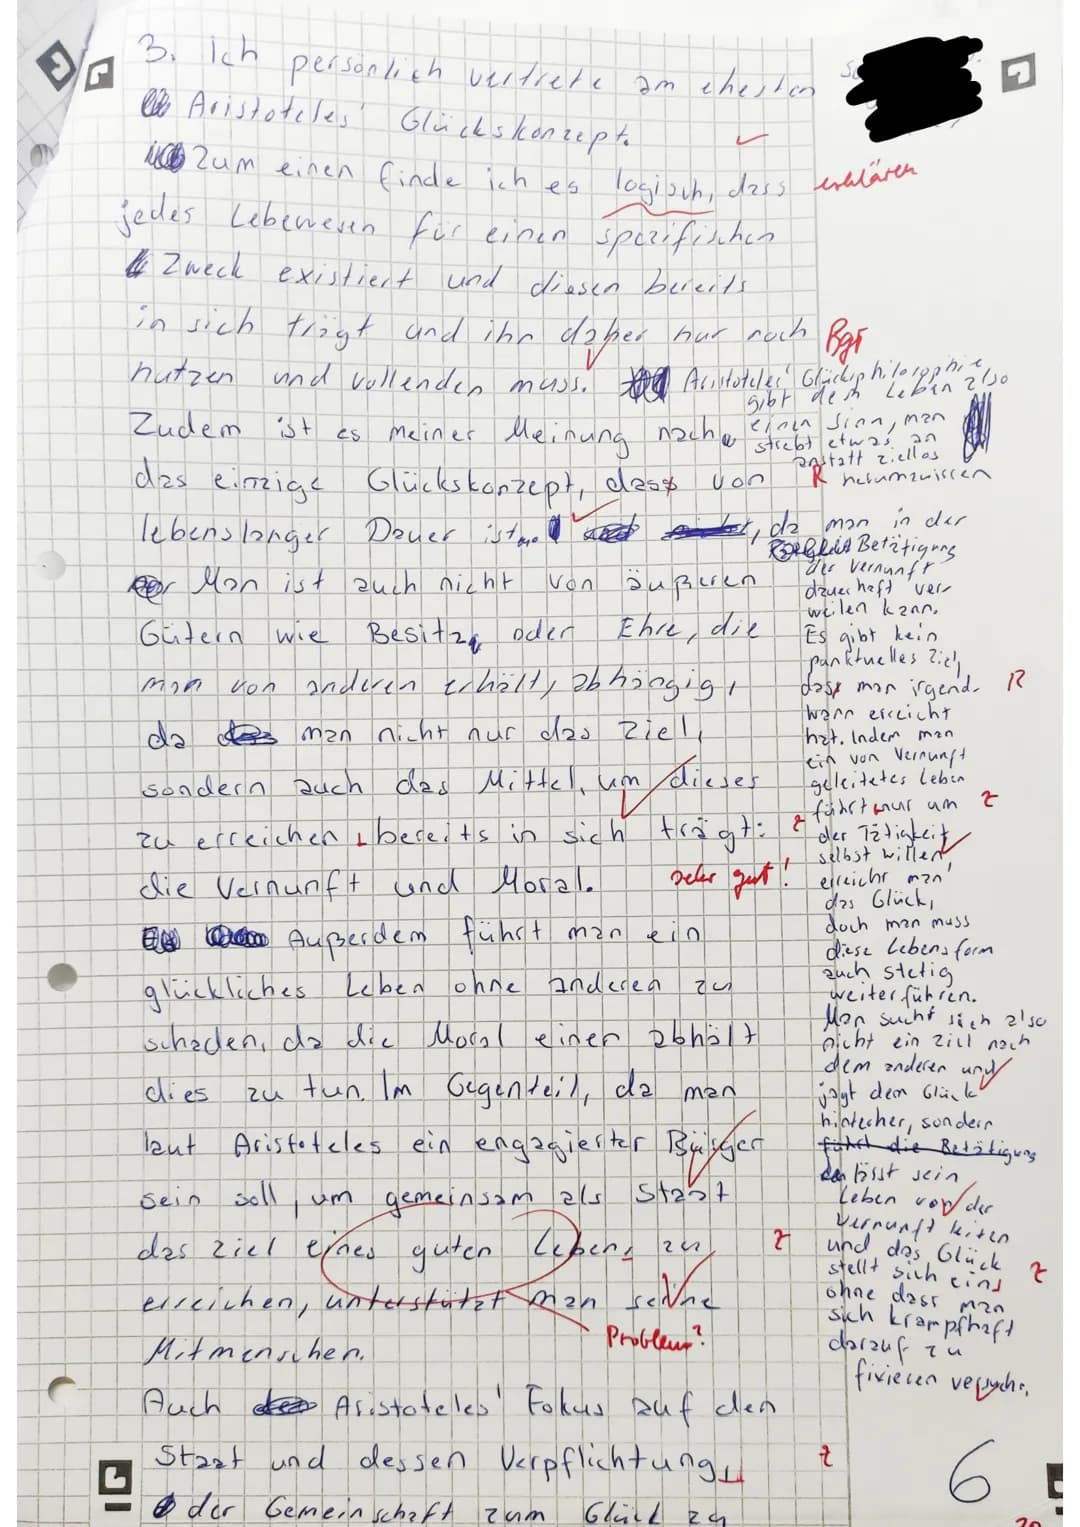 3. Ich persönlich vertrete am ehesten
Aristoteles' Glückskonzept.
Zum einen finde ich es logisch, dass
erklären
jedes Lebewesen für einen spezifischen
Zweck existiert und diesen bereits
in sich trägt und ihn daher nur noch
Bgr
nutzen und vollenden muss.
Aristoteles' Glücksphilosophie
gibt dem Leben also
einen Sinn, man
strebt etwas an
anstatt ziellos
R herumzuirren
Zudem ist es meiner Meinung nach
das einzige Glückskonzept, dass von
lebenslanger Dauer ist
, da man in der
Betätigung
der Vernunft
dauerhaft ver-
weilen kann.
Es gibt kein
punktuelles Ziel,
dass man irgend- R
wann erreicht
hat. Indem man
ein von Vernunft
geleitetes Leben
führt nur um z
der Tätigkeit
selbst willen,
erreicht man
das Glück,
doch man muss
diese Lebensform
auch stetig
weiterführen.
Man sucht sich also
nicht ein Ziel nach
dem anderen und
jagt dem Glück
hinterher, sondern
führt die Betätigung
lässt sein
Leben von der
Vernunft leiten
und das Glück
stellt sich ein, z
ohne dass man
sich krampfhaft
darauf zu
fixieren versucht.
Man ist auch nicht von äußeren
Gütern wie Besitz oder Ehre, die
man von anderen erhält, abhängig,
da man nicht nur das Ziel,
sondern auch das Mittel, um dieses
zu erreichen, bereits in sich trägt: z
die Vernunft und Moral. sehr gut!
Außerdem führt man ein
glückliches Leben ohne anderen zu
schaden, da die Moral einen abhält
dies zu tun. Im Gegenteil, da man
laut Aristoteles ein engagierter Bürger
sein soll, um gemeinsam als Staat
das Ziel eines guten Lebens zu z
erreichen, unterstützt man seine
Problem?
Mitmenschen.
Auch Aristoteles' Fokus auf den
Staat und dessen Verpflichtung, z
der Gemeinschaft zum Glück zu
6